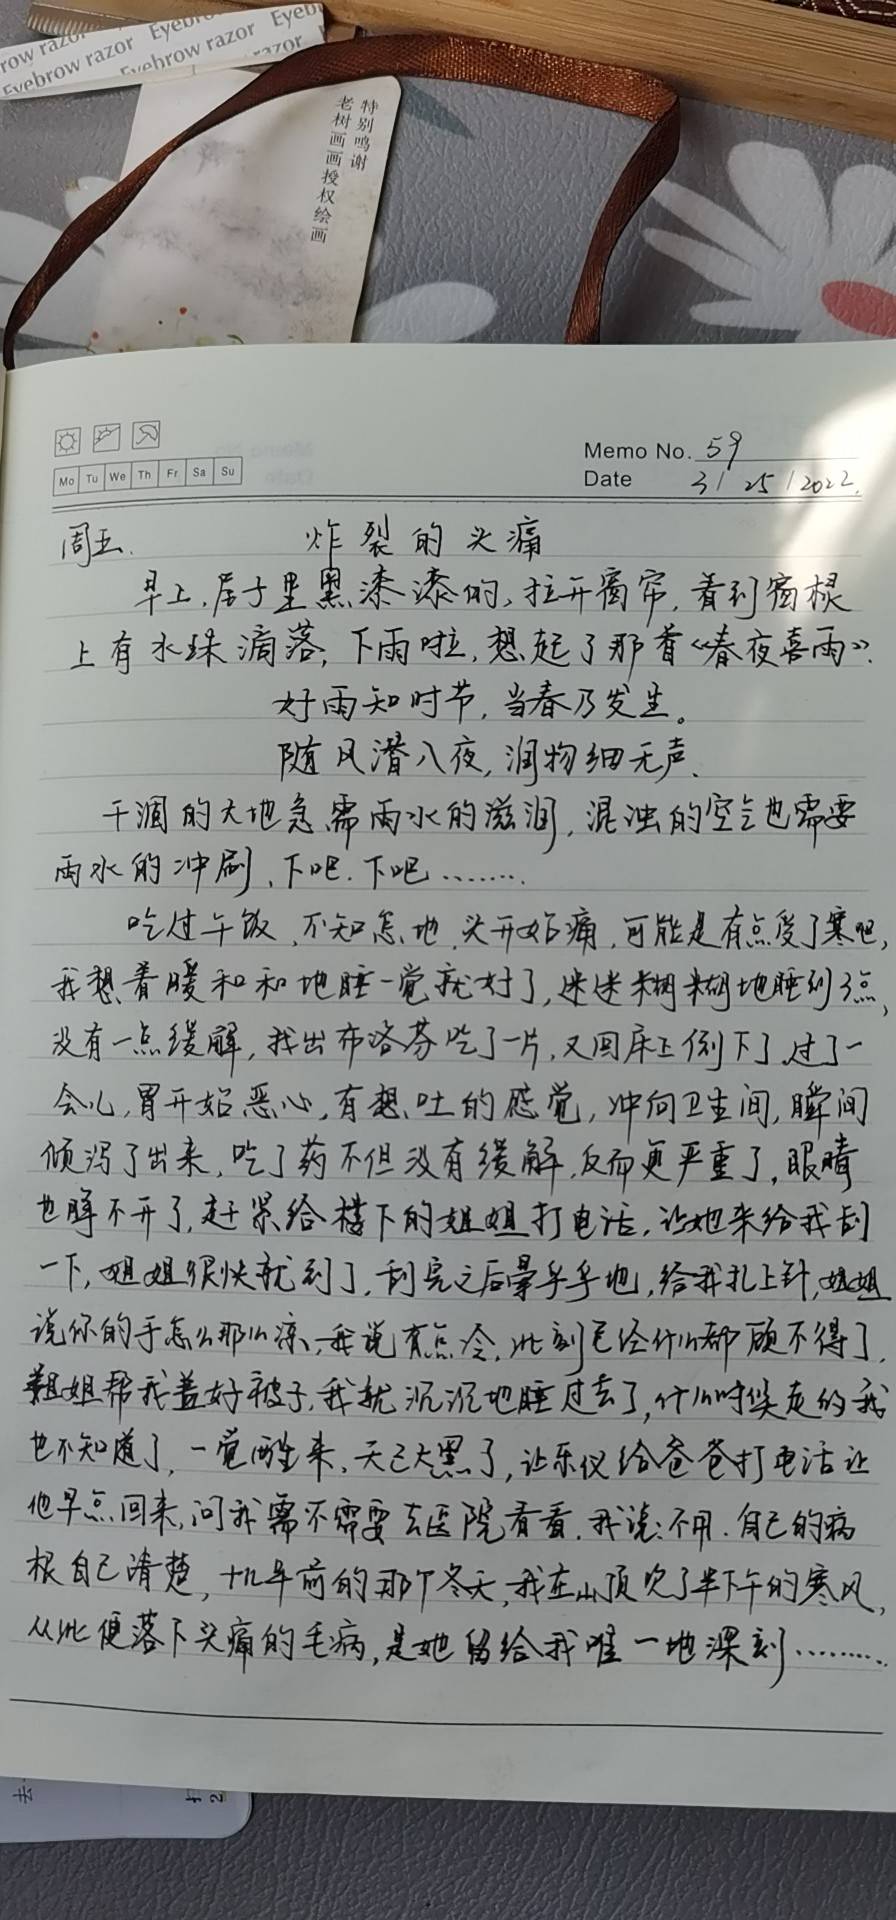 row razor Eyebrow razor Eyeb
Eyebrow razor Eyebrow razor Eyebro
Eyebrow razor
特别鸣谢
老树画画授权绘画
Mo Tu We Th Fr Sa Su
Memo No. 59
Date 3/25/2022.
周五. 炸裂的头痛
早上,屋子里黑漆漆的,拉开窗帘,看到窗棂
上有水珠滴落,下雨啦,想起了那首《春夜喜雨》.
好雨知时节,当春乃发生。
随风潜入夜,润物细无声.
干涸的大地急需雨水的滋润,混浊的空气也需要
雨水的冲刷、下吧.下吧.......
吃过午饭,不知怎地,头开始痛,可能是有点受了寒吧,
我想着暖和和地睡一觉就好了,迷迷糊糊地睡到3点,
没有一点缓解,找出布洛芬吃了一片,又回床上倒下了,过了一
会儿,胃开始恶心,有想吐的感觉,冲向卫生间,瞬间
倾泻了出来,吃了药不但没有缓解,反而更严重了,眼睛
也睁不开了,赶紧给楼下的姐姐打电话,让她来给我刮
一下,姐姐很快就到了,刮完之后晕乎乎地,给我扎上针,姐姐
说你的手怎么那么凉,我说有点冷,此刻已经什么都顾不得了,
姐姐帮我盖好被子,我就沉沉地睡过去了,什么时候走的我
也不知道了,一觉醒来,天已大黑了,让乐仪给爸爸打电话让
他早点回来,问我需不需要去医院看看.我说:不用.自己的病
根自己清楚,十几年前的那个冬天,我在山顶吹了半下午的寒风,
从此便落下头痛的毛病,是她留给我唯一地深刻.........